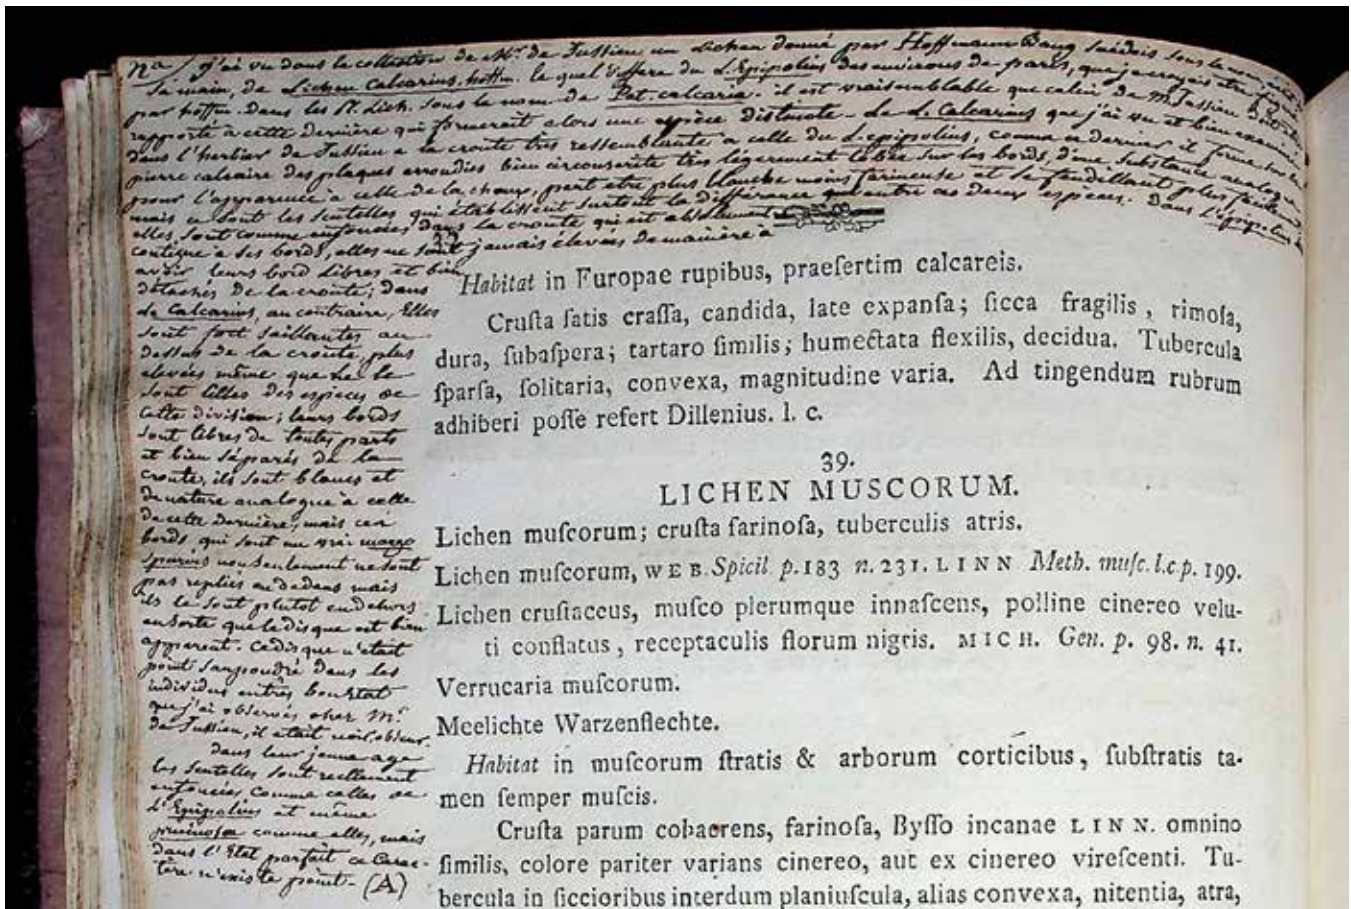 na/ j'ai vu dans la collection de Mr. de Jussieu un Lichen donné par Hoffmann Bang suédois sous le nom,
sa main, de Lichen Calcarius hoffm. le quel diffère du L. Epipolius des environs de paris, que je croyais être figuré
par hoffm. dans les Pl. Lich. sous le nom de Pat. calcaria. il est vraisemblable que celui de M. Jussieu doit être
rapporté à cette dernière qui formerait alors une espèce distincte - Le L. Calcarius que j'ai vu et bien examiné
dans l'herbier de Jussieu a la croute très ressemblante à celle du L. epipolius, comme ce dernier il forme sur la
pierre calcaire des plaques arrondies bien circonscrite très légerement lobée sur les bords, d'une substance analogue
pour l'apparence à celle de la chaux, peut etre plus blanche moins farineuse et se fendillant plus facilement
mais ce sont les scutelles qui établissent surtout la différence entre ces deux espèces. dans L'Epipolius
elles sont comme enfoncées dans la croute qui est absolument
contigue à ses bords, elles ne sont jamais élevées de manière à
avoir leurs bord libres et bien
détachés de la croute; dans
le Calcarius, au contraire, Elles
sont fort saillantes au
dessus de la croute, plus
elevées même que ne le
sont celles des espèces de
cette division; leurs bords
sont libres de toutes parts
et bien séparés de la
croute, ils sont blancs et
de nature analogue à celle
de cette dernière, mais ces
bords qui sont un vrai margo
spurius non seulement ne sont
pas repliés en dedans mais
ils le sont plutot en dehors
en sorte que le disque est bien
apparent. Ce disque n'etait
point saupoudré dans les
individus en très bon état
que j'ai observés chez Mr.
de Jussieu, il était noir obscur.
dans leur jeune age
les scutelles sont reellement
enfoncées comme celles de
L'Epipolius et même
pruinosa comme elles, mais
dans l'Etat parfait ce Carac-
tère n'existe point - (A)
Habitat in Europae rupibus, praeſertim calcareis.
Cruſta ſatis craſſa, candida, late expanſa; ſicca fragilis, rimoſa,
dura, ſubaſpera; tartaro ſimilis; humectata flexilis, decidua. Tubercula
ſparſa, ſolitaria, convexa, magnitudine varia. Ad tingendum rubrum
adhiberi poſſe refert Dillenius. l. c.
39.
LICHEN MUSCORUM.
Lichen muſcorum; cruſta farinoſa, tuberculis atris.
Lichen muſcorum, WEB. Spicil p. 183 n. 231. LINN Meth. muſc. l. c p. 199.
Lichen cruſtaceus, muſco plerumque innaſcens, polline cinereo velu-
ti conflatus, receptaculis florum nigris. MICH. Gen. p. 98. n. 41.
Verrucaria muſcorum.
Meelichte Warzenflechte.
Habitat in muſcorum ſtratis & arborum corticibus, ſubſtratis ta-
men ſemper muſcis.
Cruſta parum cohaerens, farinoſa, Byſſo incanae LINN. omnino
ſimilis, colore pariter varians cinereo, aut ex cinereo vireſcenti. Tu-
bercula in ſiccioribus interdum planiuſcula, alias convexa, nitentia, atra,